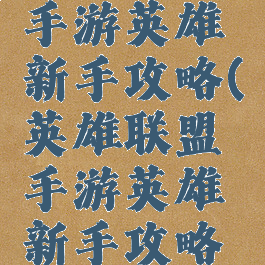 手游英雄
新手攻略(
英雄联盟
手游英雄
新手攻略